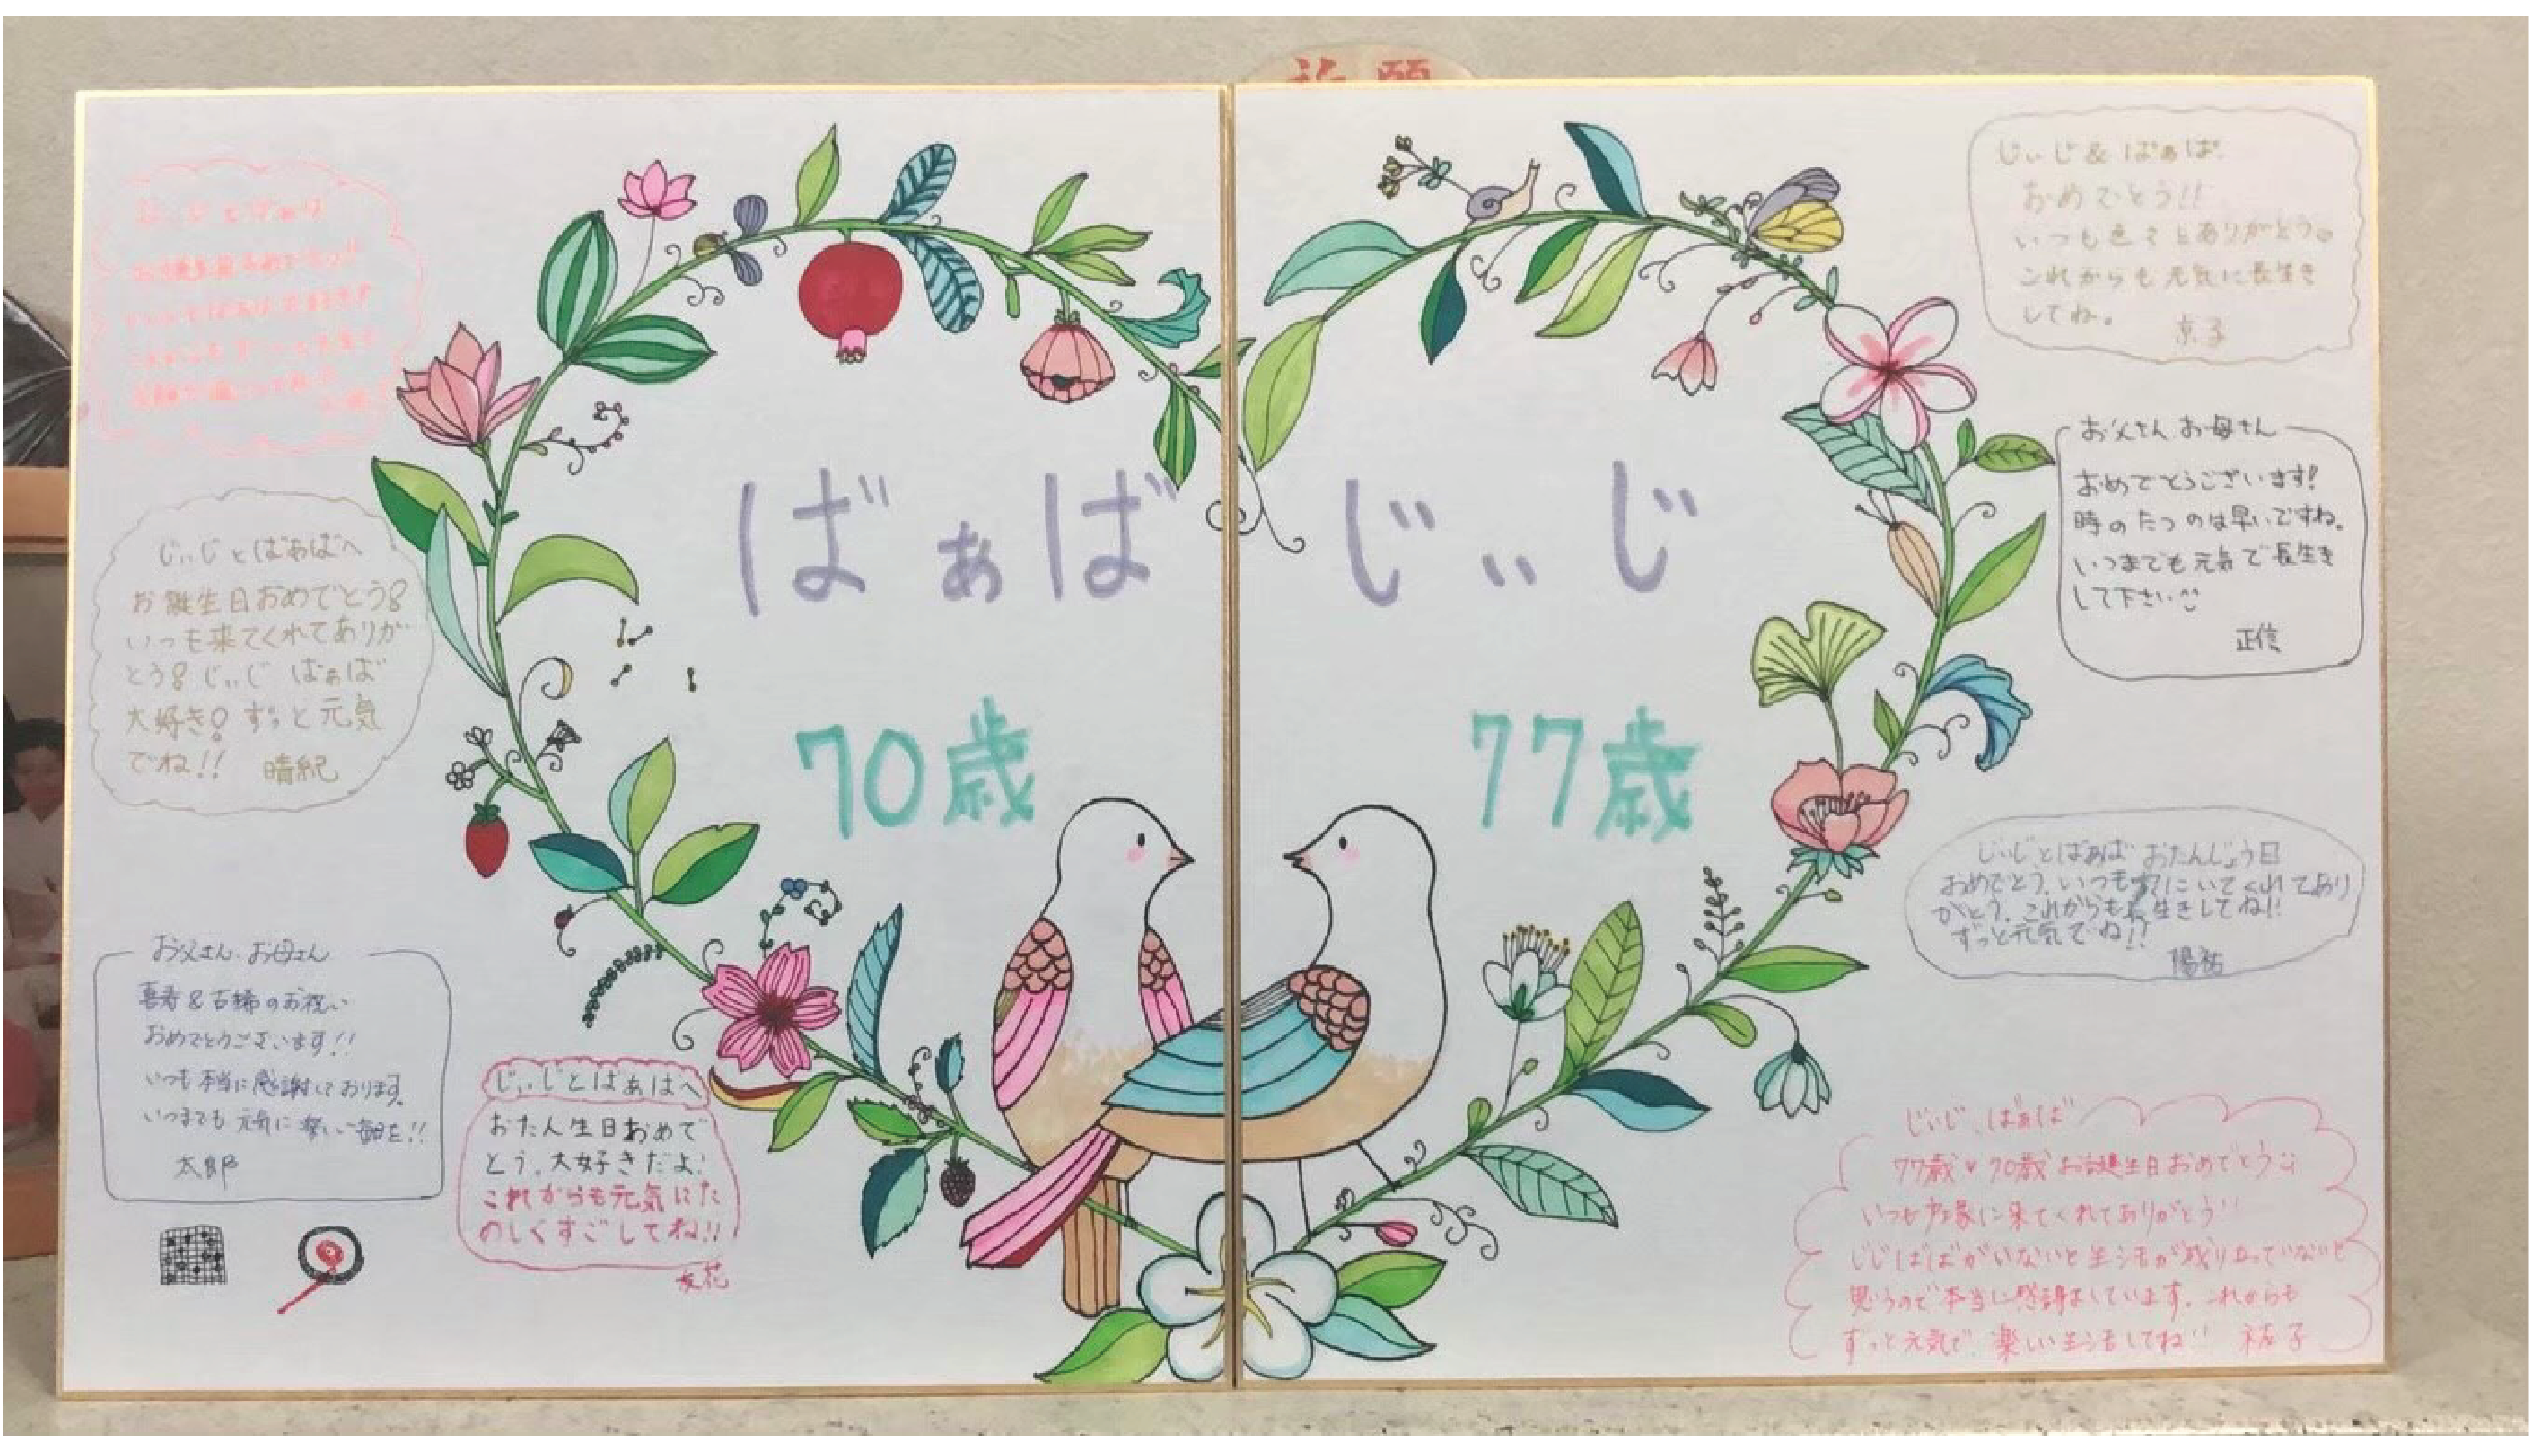 祈願
じぃじとばぁば
じぃじとばぁばへ
お誕生日おめでとう!
いつも来てくれてありが
とう!じぃじ ばぁば
大好き!ずっと元気
でね!! 晴紀
お父さん、お母さん
喜寿&古稀のお祝い
おめでとうございます!!
いつも本当に感謝しております。
いつまでも元気に楽しい毎日を!!
太郎
じぃじとばぁばへ
おたん生日おめで
とう。大好きだよ!
これからも元気にた
のしくすごしてね!!
友花
ばぁば
70歳
じぃじ
77歳
じぃじ&ばぁば
おめでとう!!
いつも色々とありがとう
これからも元気に長生き
してね。 京子
お父さん、お母さん
おめでとうございます!
時のたつのは早いですね。
いつまでも元気で長生き
して下さい^^
正信
じぃじとばぁば おたんじょう日
おめでとう。いつも にいてくれてあり
がとう。これからも長生きしてね!!
ずっと元気でね!!
陽祐
じぃじ、ばぁば
77歳♥70歳お誕生日おめでとう
いつも 家に来てくれてありがとう!!
じじばばがいないと生活が成り立っていないと
思うので本当に感謝しています。これからも
ずっと元気で、楽しい生活してね!!